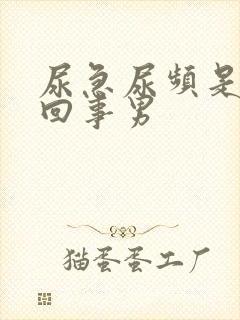 尿急尿频是
回事男
猫蛋蛋工厂